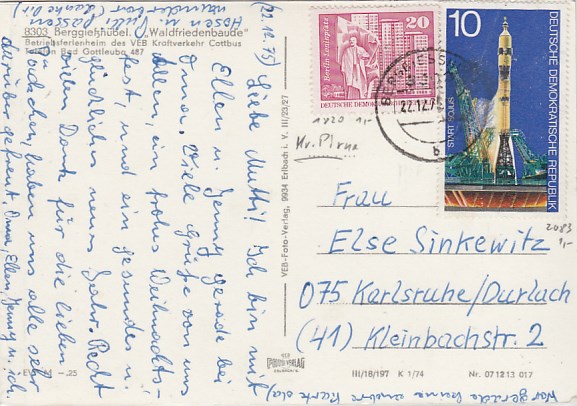 8303 Berggießhübel. „Waldfriedenbaude“
Betriebsferienheim des VEB Kraftverkehr Cottbus
Telefon Bad Gottleuba 487
Hosen u. Pulli passen
wunderbar (danke Dir)
(22.12.75) Liebe Mutti! Ich bin mit
Ellen u. Jenny gerade bei
Oma. Viele Grüße von uns
allen, ein frohes Weihnachts-
fest, und ein gesundes u.
glückliches neues Jahr. Recht
vielen Dank für die lieben
Päckchen, haben uns alle sehr
darüber gefreut. Oma, Ellen, Jenny u. ich.
EVP M -.25
VEB-Foto-Verlag, 9934 Erlbach i. V. III/23/27
Berlin-Leninplatz
20
DEUTSCHE DEMOKRATISCHE
10
DEUTSCHE DEMOKRATISCHE REPUBLIK
START SOJUS
22.12.75
b
1820 1,-
Kr. Pirna
2083
1,-
Frau
Else Sinkewitz
075 Karlsruhe/Durlach
(41) Kleinbachstr. 2
III/18/197 K 1/74 Nr. 071213 017
(Hab gerade keine andere Karte da)